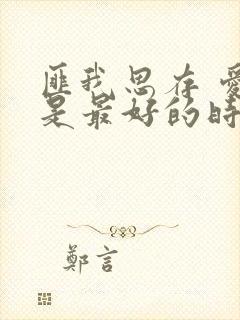 匪我思存 愛
是最好的時
鄭言